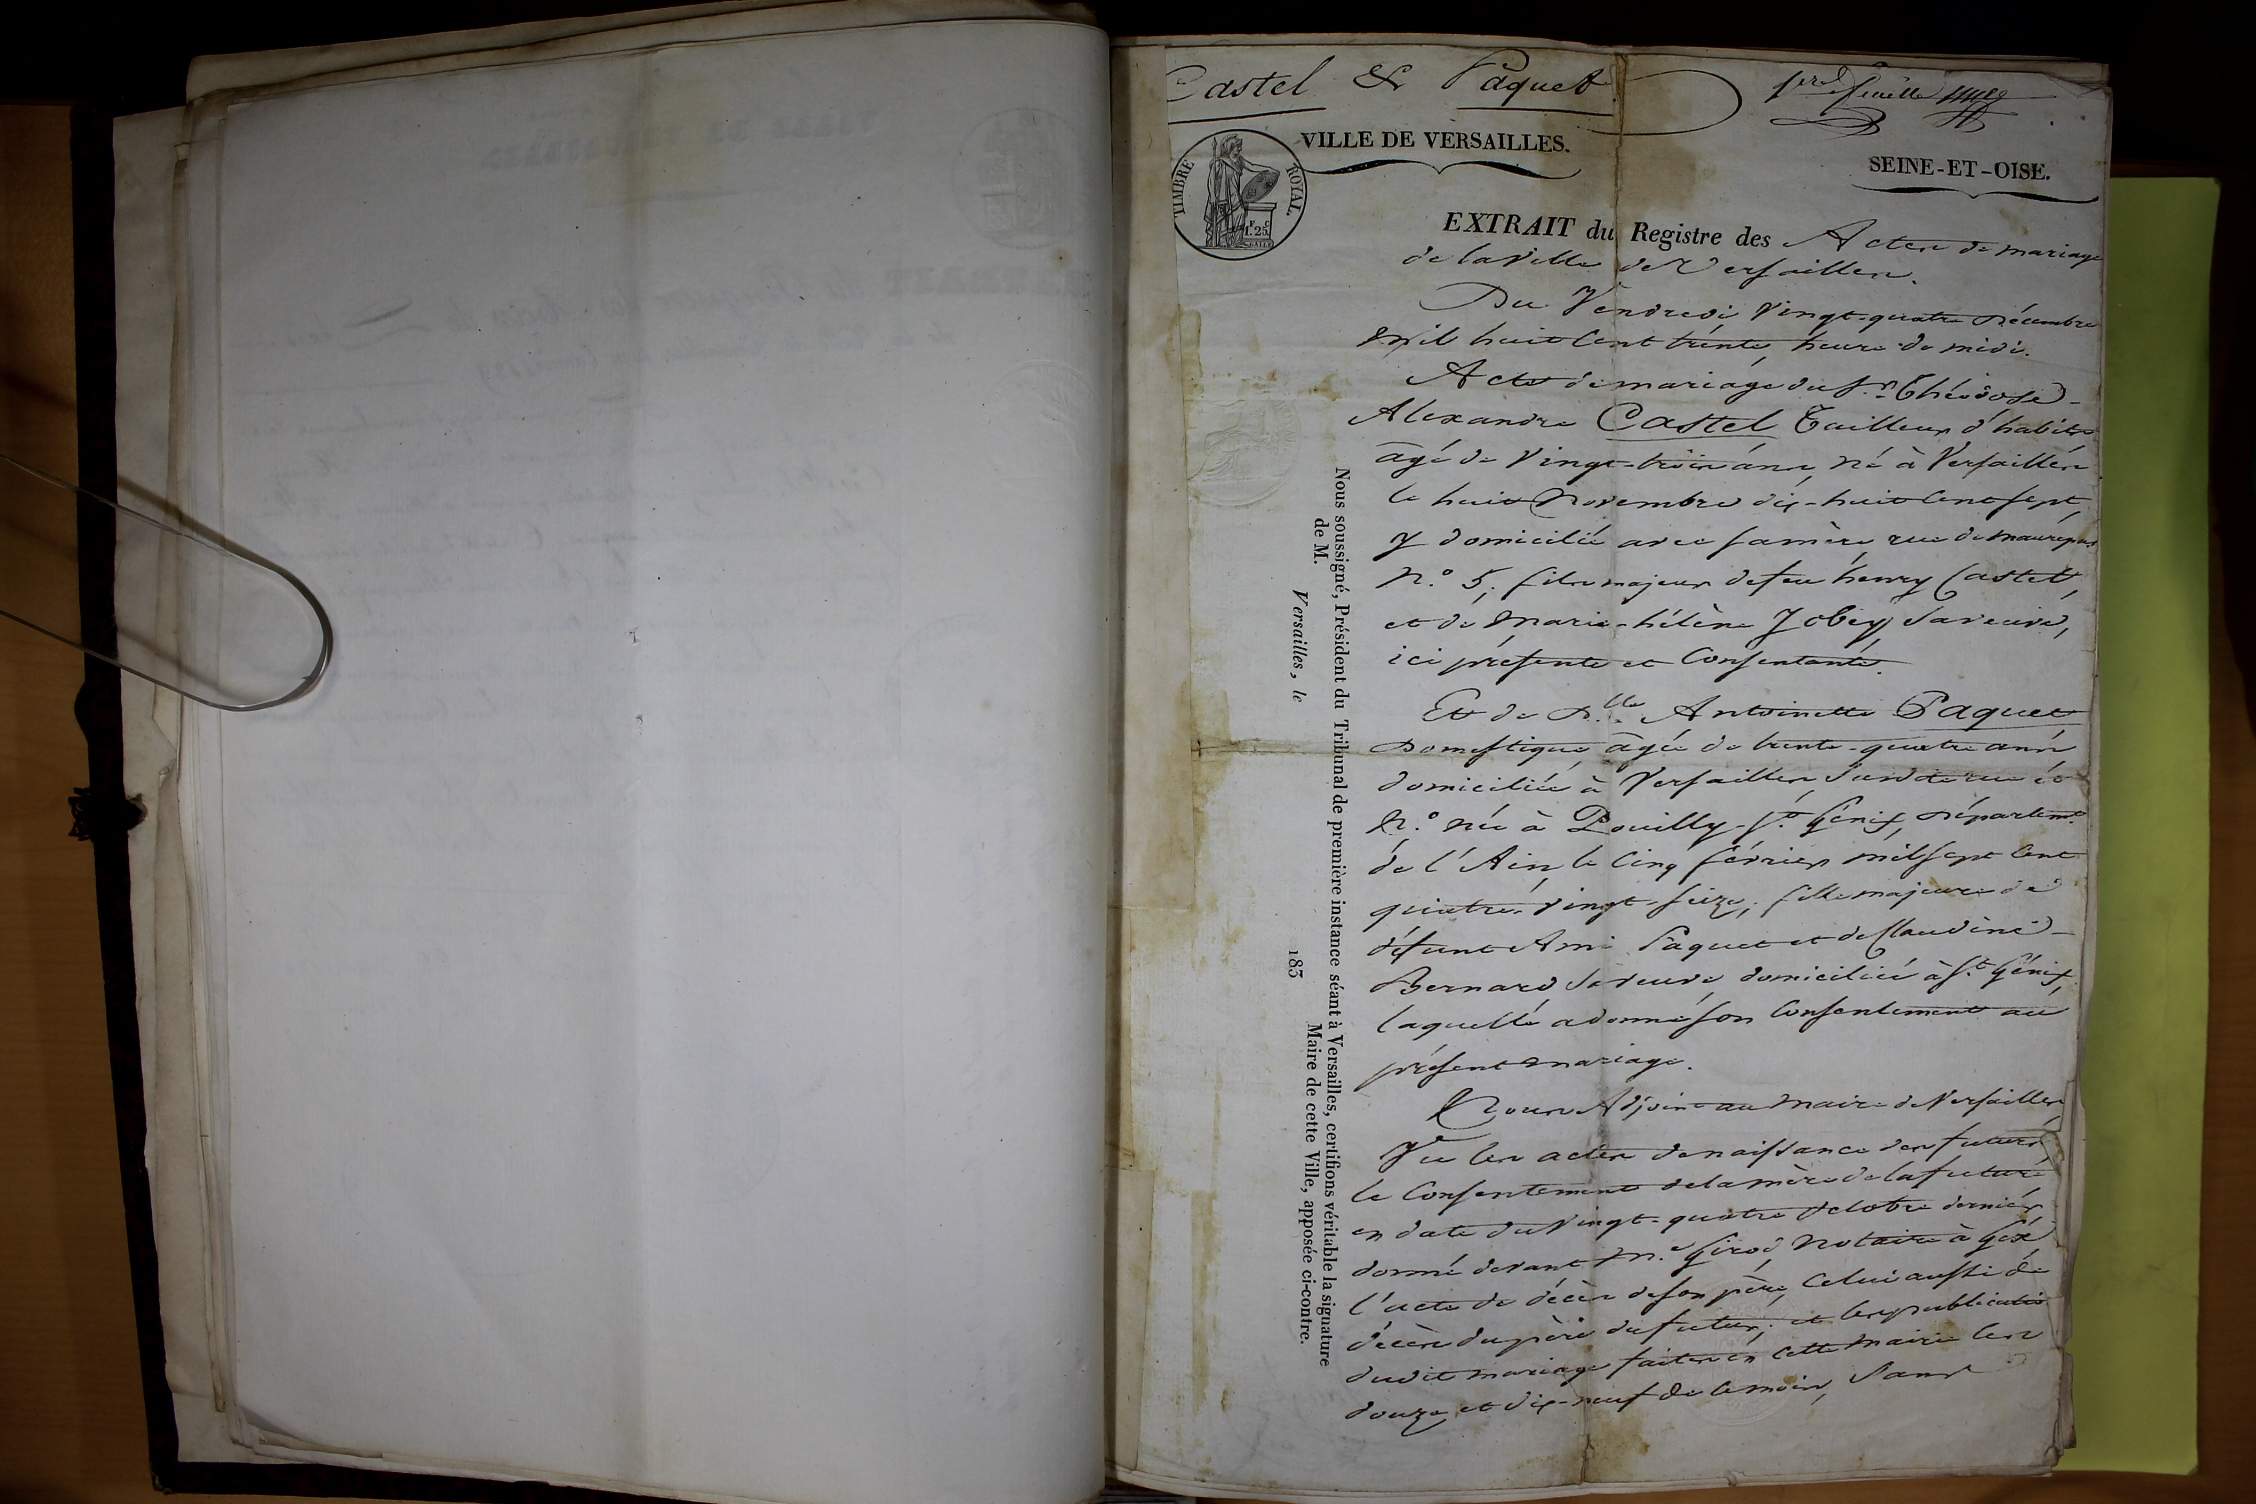 Castel & Paquet
1ere feuille
VILLE DE VERSAILLES.
SEINE-ET-OISE.
TIMBRE ROYAL
1F. 25C
EXTRAIT du Registre des Actes de mariage
de la Ville de Versailles.
Du Vendredi Vingt-quatre Décembre
mil huit Cent trente, heure de midi.
Acte de mariage du Sr. Théodose-
Alexandre Castel Tailleur d'habits
âgé de Vingt-trois ans, Né à Versailles
le huit Novembre dix-huit Cent sept,
y domicilié avec sa mère, rue de Maurepas
N.° 5, fils majeur de feu henry Castel,
et de Marie-hélène Jobey, sa veuve,
ici présente et Consentante.
Et de Dlle. Antoinette Paquet
Domestique, âgée de trente-quatre ans
domiciliée à Versailles, susdite rue et
N.° née à Pouilly-St. Génix, Départemt.
de l'Ain le Cinq février mil sept Cent
quatre-vingt-seize, fille majeure de
défunt Ami Paquet et de Claudine-
Bernard sa veuve, domiciliée à St. Génix,
laquelle a donné son Consentement au
présent mariage.
Nous Adjoint au Maire de Versailles,
Vu les actes de naissance des futurs,
le Consentement de la mère de la future
en date du Vingt-quatre octobre dernier
donné devant Me. Girod, Notaire à Gex
l'acte de décès de son père, Celui aussi de
décès du père du futur; et les publicatio
dudit mariage faites en Cette Mairie les
douze et dix-neuf de Ce mois, sans
Nous soussigné, Président du Tribunal de première instance séant à Versailles, certifions véritable la signature
de M. Maire de cette Ville, apposée ci-contre.
Versailles, le 183